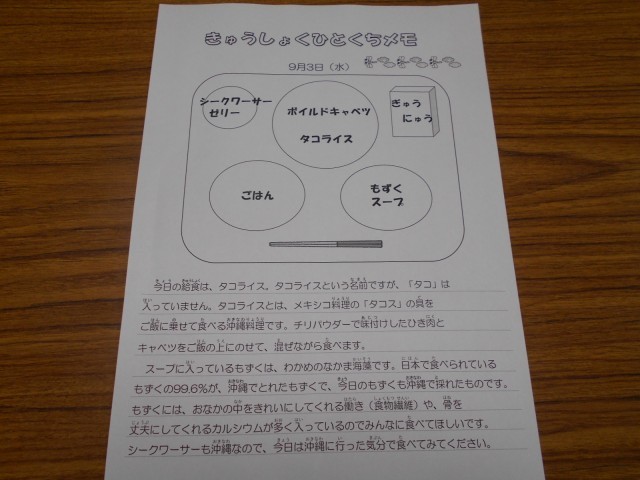 きゅうしょくひとくちメモ
9月3日（水）
シークワーサー
ゼリー
ボイルドキャベツ
タコライス
ぎゅう
にゅう
ごはん
もずく
スープ
今日の給食は、タコライス。タコライスという名前ですが、「タコ」は
入っていません。タコライスとは、メキシコ料理の「タコス」の具を
ご飯に乗せて食べる沖縄料理です。チリパウダーで味付けしたひき肉と
キャベツをご飯の上にのせて、混ぜながら食べます。
スープに入っているもずくは、わかめのなかま海藻です。日本で食べられている
もずくの99.6%が、沖縄でとれたもずくで、今日のもずくも沖縄で採れたものです。
もずくには、おなかの中をきれいにしてくれる働き（食物繊維）や、骨を
丈夫にしてくれるカルシウムが多く入っているのでみんなに食べてほしいです。
シークワーサーも沖縄なので、今日は沖縄に行った気分で食べてみてください。